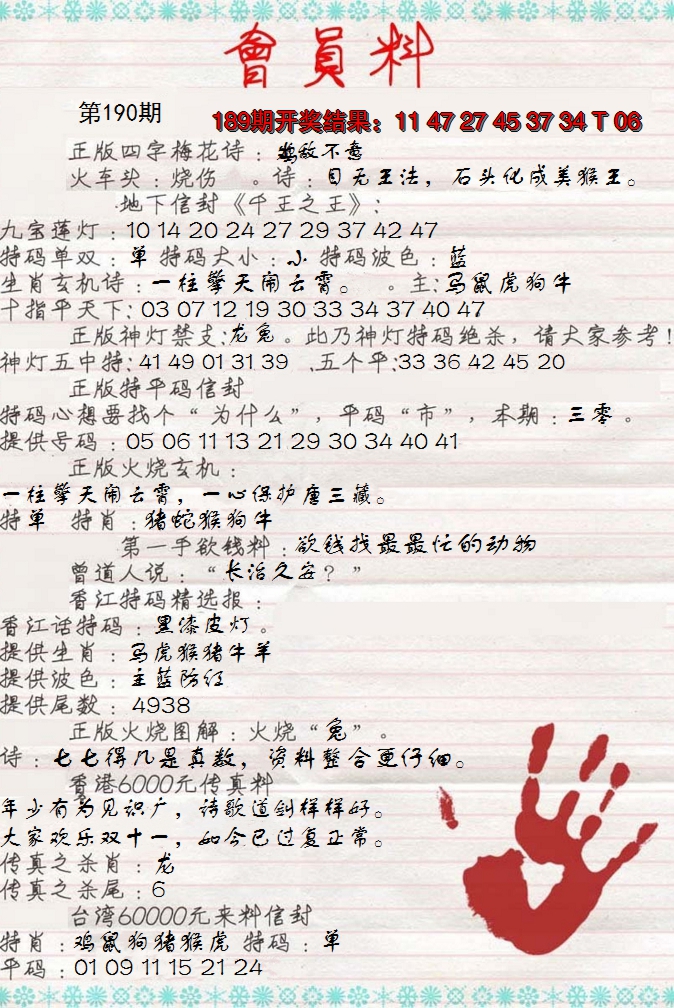 會員料
第190期
189期开奖结果：11 47 27 45 37 34 T 06
正版四字梅花诗：鸡敌不意
火车头：烧伤 。诗：目无王法，石头化成美猴王。
地下信封《千王之王》：
九宝莲灯：10 14 20 24 27 29 37 42 47
特码单双：单 特码大小：小 特码波色：蓝
生肖玄机诗：一柱擎天闹云霄。 。主：马鼠虎狗牛
十指平天下：03 07 12 19 30 33 34 37 40 47
正版神灯禁支：龙兔。此乃神灯特码绝杀，请大家参考！
神灯五中特：41 49 01 31 39 .五个平：33 36 42 45 20
正版特平码信封
特码心想要找个“为什么”，平码“市”，本期：三零。
提供号码：05 06 11 13 21 29 30 34 40 41
正版火烧玄机：
一柱擎天闹云霄，一心保护唐三藏。
特单 特肖：猪蛇猴狗牛
第一手欲钱料：欲钱找最最忙的动物
曾道人说：“长治久安？”
香江特码精选报：
香江话特码：黑漆皮灯。
提供生肖：马虎猴猪牛羊
提供波色：主蓝防红
提供尾数：4938
正版火烧图解：火烧“兔”。
诗：七七得几是真数，资料整合更仔细。
香港6000元传真料
年少有为见识广，诗歌道剑样样好。
大家欢乐双十一，如今已过复正常。
传真之杀肖：龙
传真之杀尾：6
台湾60000元来料信封
特肖：鸡鼠狗猪猴虎 特码：单
平码：01 09 11 15 21 24